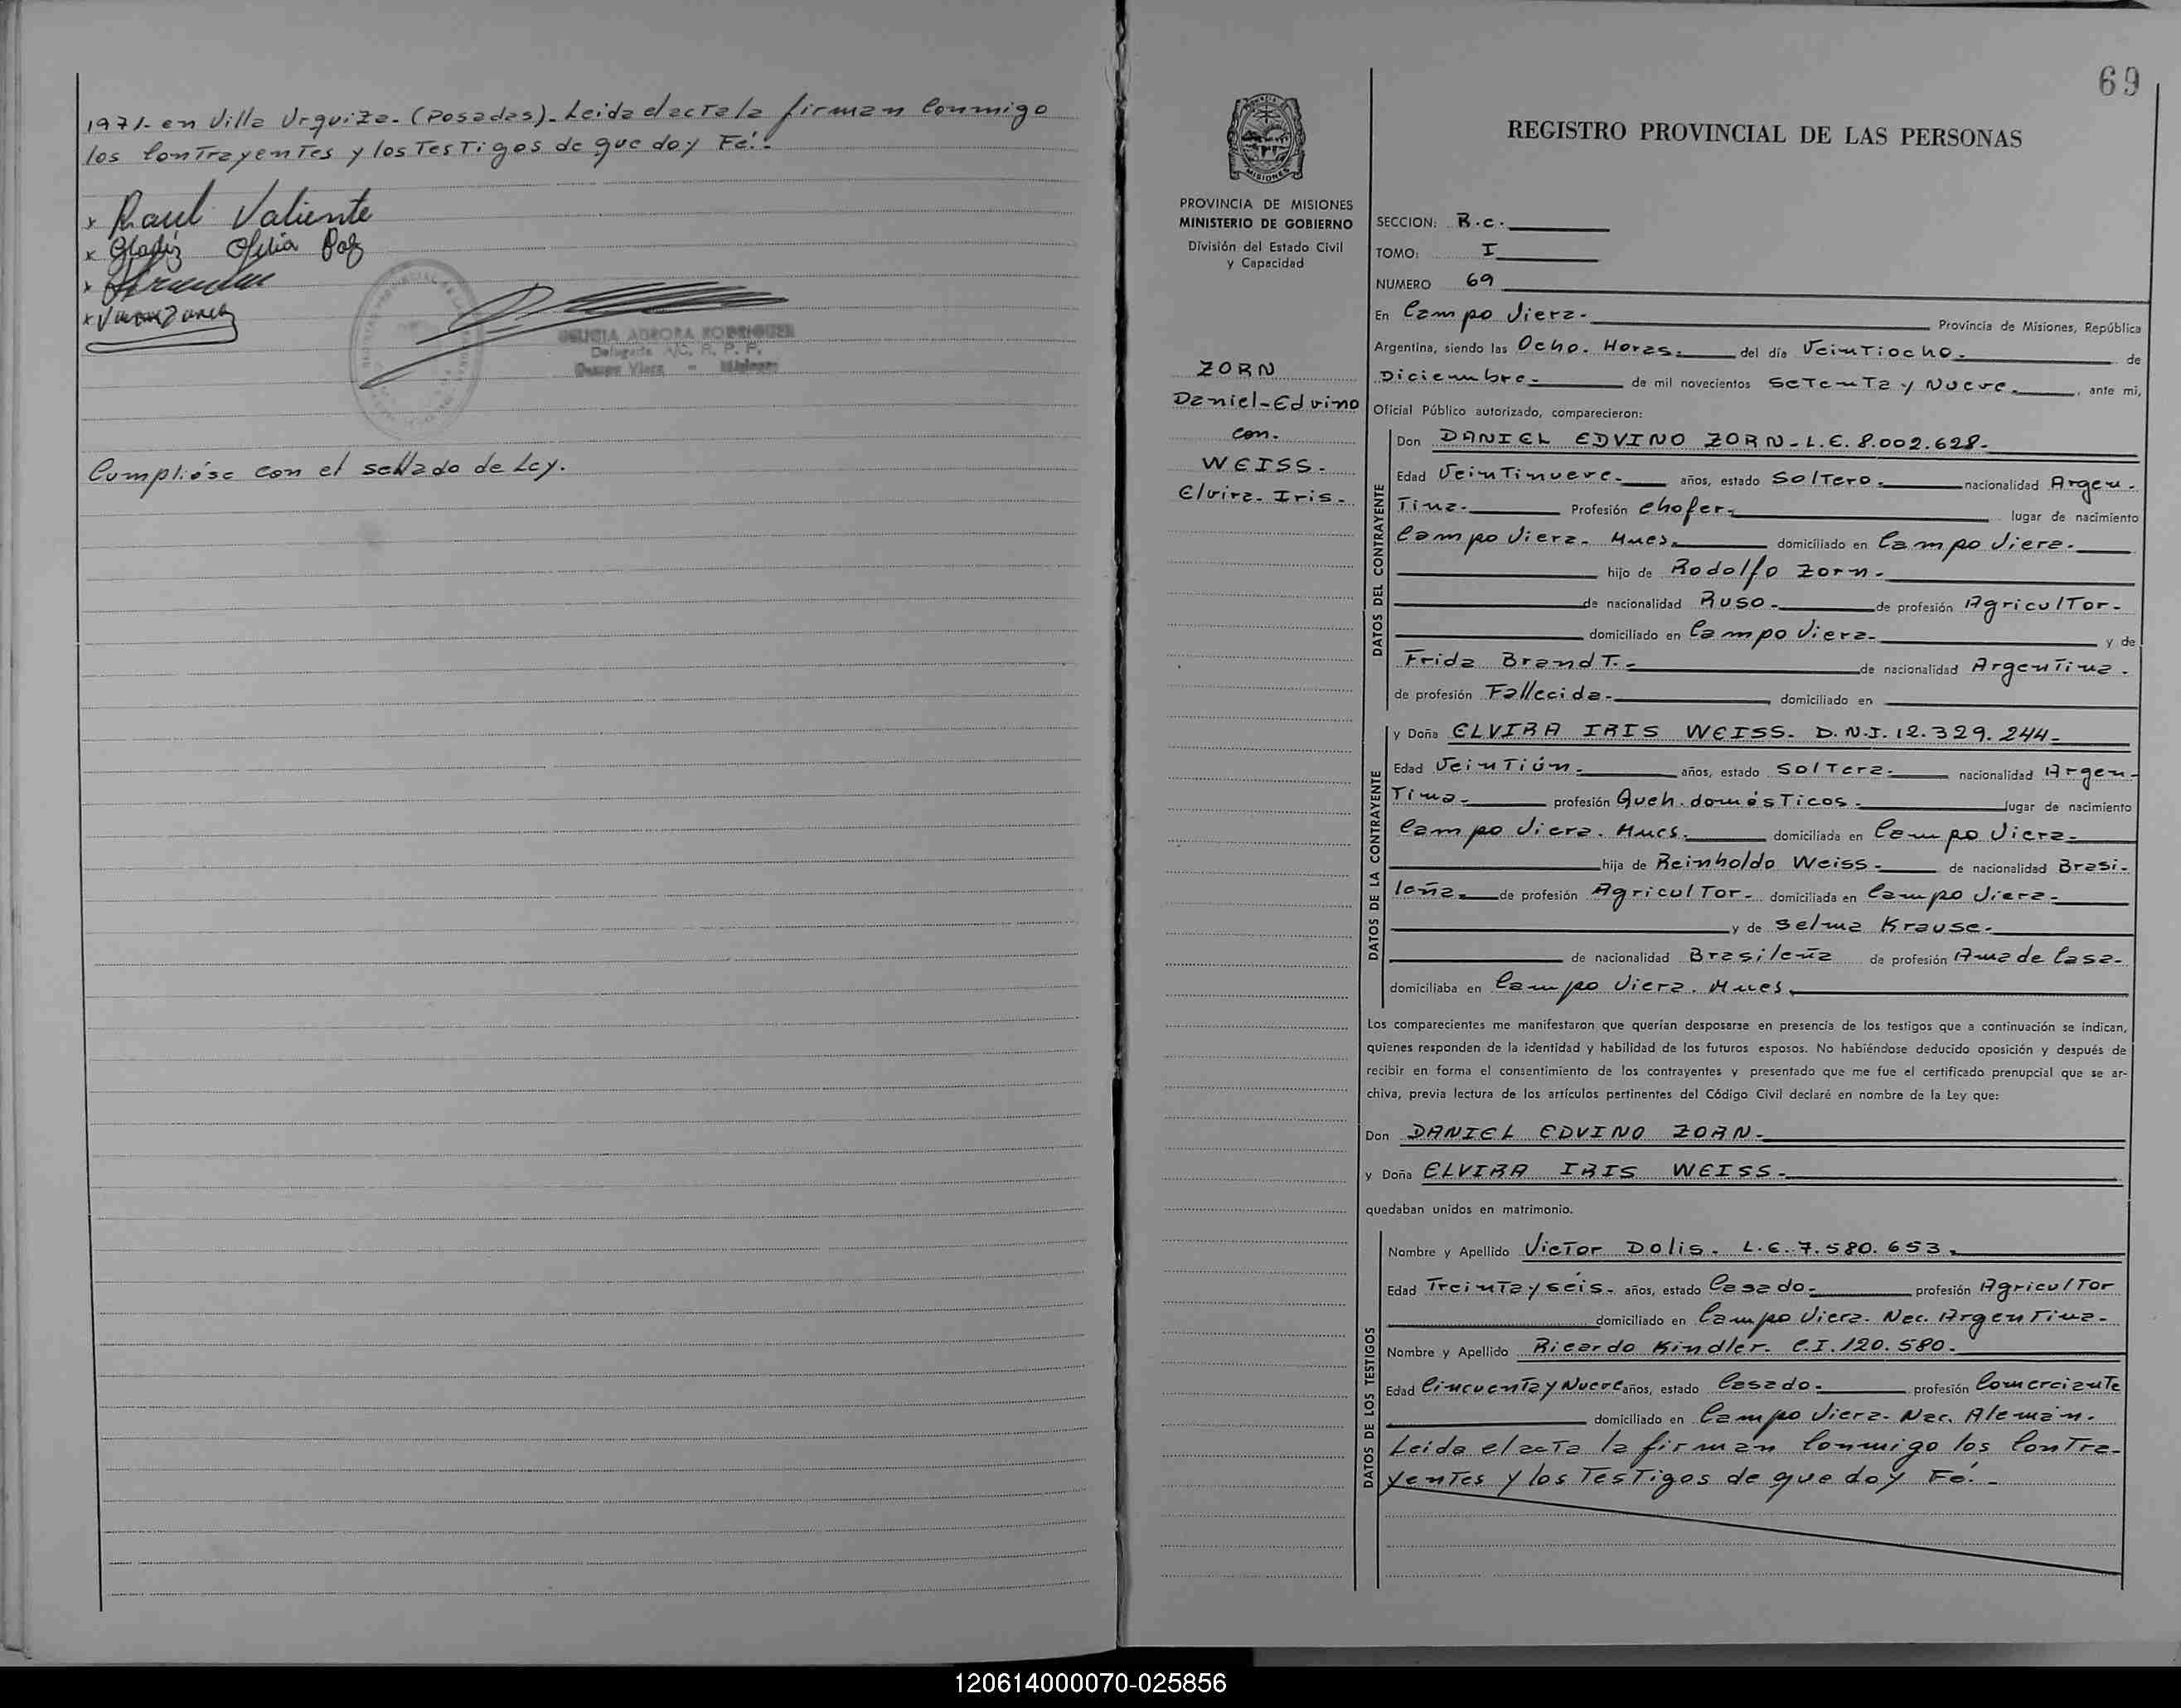 1971- en Villa Urquiza- (Posadas)- Leida el acta la firman Conmigo
los Contrayentes y los Testigos de que doy Fé.-
x Raul Valiente
x Gladiz Ofelia Paz
x
x
DELICIA AURORA RODRIGUEZ
Delegada A/C. R. P. P.
Campo Viera - Misiones
Cumplióse con el sellado de Ley.
69
REGISTRO PROVINCIAL DE LAS PERSONAS
PROVINCIA DE MISIONES
MINISTERIO DE GOBIERNO
División del Estado Civil
y Capacidad
ZORN
Daniel-Edvino
con.
WEISS.
Elvira- Iris-
SECCION: R.C.
TOMO: I
NUMERO 69
En Campo Viera- Provincia de Misiones, República
Argentina, siendo las Ocho. Horas. del día Veintiocho. de
Diciembre- de mil novecientos Setenta y Nueve. , ante mi,
Oficial Público autorizado, comparecieron:
DATOS DEL CONTRAYENTE
Don DANIEL EDVINO ZORN- L.E. 8.002.628-
Edad Veintinueve- años, estado Soltero- nacionalidad Argen-
Tina- Profesión Chofer- lugar de nacimiento
Campo Viera- Mnes. domiciliado en Campo Viera-
hijo de Rodolfo Zorn-
de nacionalidad Ruso- de profesión Agricultor-
domiciliado en Campo Viera- y de
Frida Brandt.- de nacionalidad Argentina-
de profesión Fallecida- domiciliado en
DATOS DE LA CONTRAYENTE
y Doña ELVIRA IRIS WEISS- D.N.I. 12.329.244-
Edad Veintiún- años, estado Soltera- nacionalidad Argen-
Tina- profesión Queh. domésticos- lugar de nacimiento
Campo Viera. Mnes. domiciliada en Campo Viera-
hija de Reinholdo Weiss- de nacionalidad Brasi-
leña- de profesión Agricultor- domiciliada en Campo Viera-
y de Selma Krause-
de nacionalidad Brasileña de profesión Ama de Casa-
domiciliaba en Campo Viera. Mnes.
Los comparecientes me manifestaron que querían desposarse en presencia de los testigos que a continuación se indican,
quienes responden de la identidad y habilidad de los futuros esposos. No habiéndose deducido oposición y después de
recibir en forma el consentimiento de los contrayentes y presentado que me fue el certificado prenupcial que se ar-
chiva, previa lectura de los artículos pertinentes del Código Civil declaré en nombre de la Ley que:
Don DANIEL EDVINO ZORN-
y Doña ELVIRA IRIS WEISS-
quedaban unidos en matrimonio.
DATOS DE LOS TESTIGOS
Nombre y Apellido Victor Dolis- L.E. 7.580.653.
Edad Treinta y séis- años, estado Casado- profesión Agricultor
domiciliado en Campo Viera- Nac. Argentina-
Nombre y Apellido Ricardo Kindler- C.I. 120.580-
Edad Cincuenta y Nueve años, estado Casado- profesión Comerciante
domiciliado en Campo Viera- Nac. Alemán-
Leida el acta la firman Conmigo los Contra-
yentes y los Testigos de que doy Fé.-
120614000070-025856